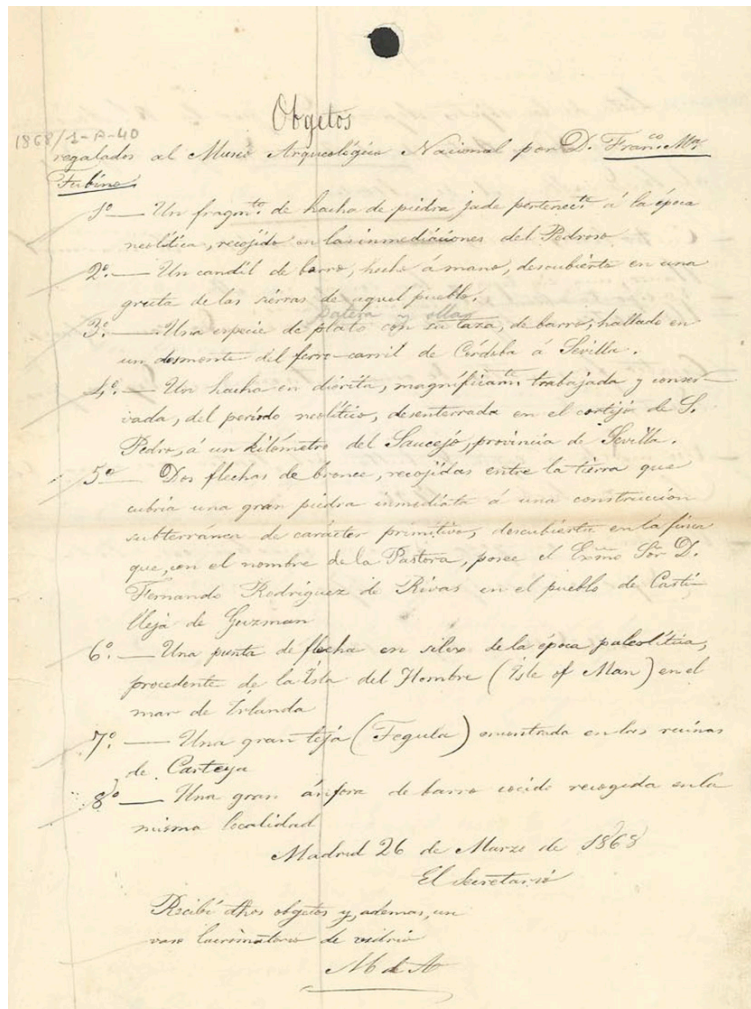 Obgetos
1868/1-A-40
regalados al Museo Arqueológico Nacional por D. Franco. Ma.
Tubino.
1º — Un fragmto. de hacha de piedra jade pertenecte. á la época
neolítica, recojido en las inmediaciones del Pedroso
2º. — Un candil de barro, hecho á mano, descubierto en una
grieta de las sierras de aquel pueblo.
patera y ollas
3º. — Una especie de plato con su taza, de barro, hallado en
un desmonte del ferro-carril de Córdoba á Sevilla.
4º. — Un hacha en diorita, magníficamte. trabajada y conser-
vada, del período neolítico, desenterrada en el cortijo de S.
Pedro, á un kilómetro del Saucejo, provincia de Sevilla.
5º — Dos flechas de bronce, recojidas entre la tierra que
cubria una gran piedra inmediata á una construccion
subterránea de carácter primitivo, descubierta en la finca
que, con el nombre de la Pastora, posee el Exmo Sor D.
Fernando Rodriguez de Rivas en el pueblo de Casti-
lleja de Guzman
6º. — Una punta de flecha en silex de la época paleolítica,
procedente de la Isla del Hombre (Isle of Man) en el
mar de Irlanda
7º. — Una gran teja (Tegula) encontrada en las ruinas
de Carteya
8º — Una gran ánfora de barro cocido recogida en la
misma localidad
Madrid 26 de Marzo de 1868
El Secretario
Recibí dhos objetos y, ademas, un
vaso lacrimatorio de vidrio
M de A